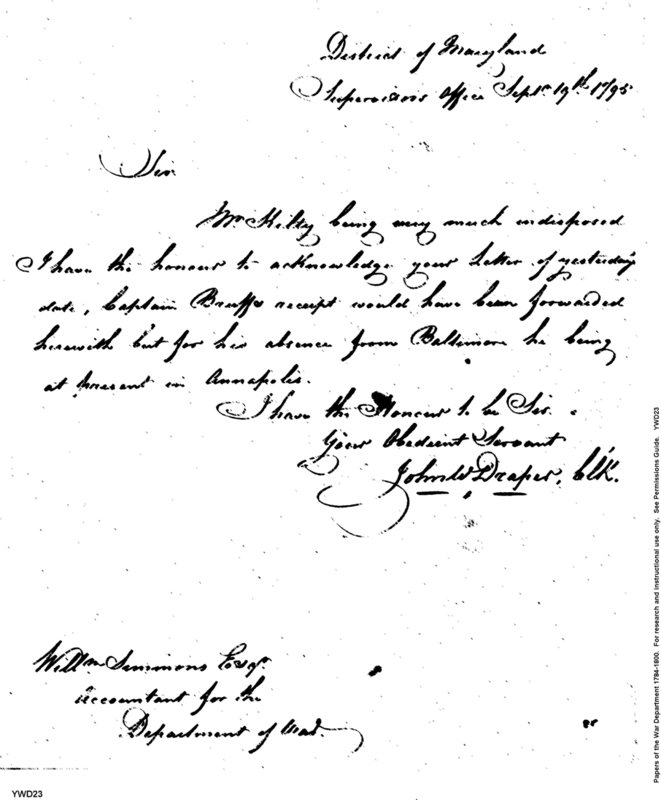 District of Maryland
Supervisors Office Septr. 19th. 1795
Sir
Mr. Kilty being very much indisposed
I have the honour to acknowledge your Letter of yesterday
date, Captain Bruffs receipt would have been forwarded
herewith but for his absence from Baltimore he being
at present in Annapolis.
I have the Honour to be Sir
Your Obedient Servant
John W Draper, Clk.
Willm Simmons Esqr.
Accountant for the
Department of War.
YWD23
Papers of the War Department 1784-1800. For research and instructional use only. See Permissions Guide. YWD23